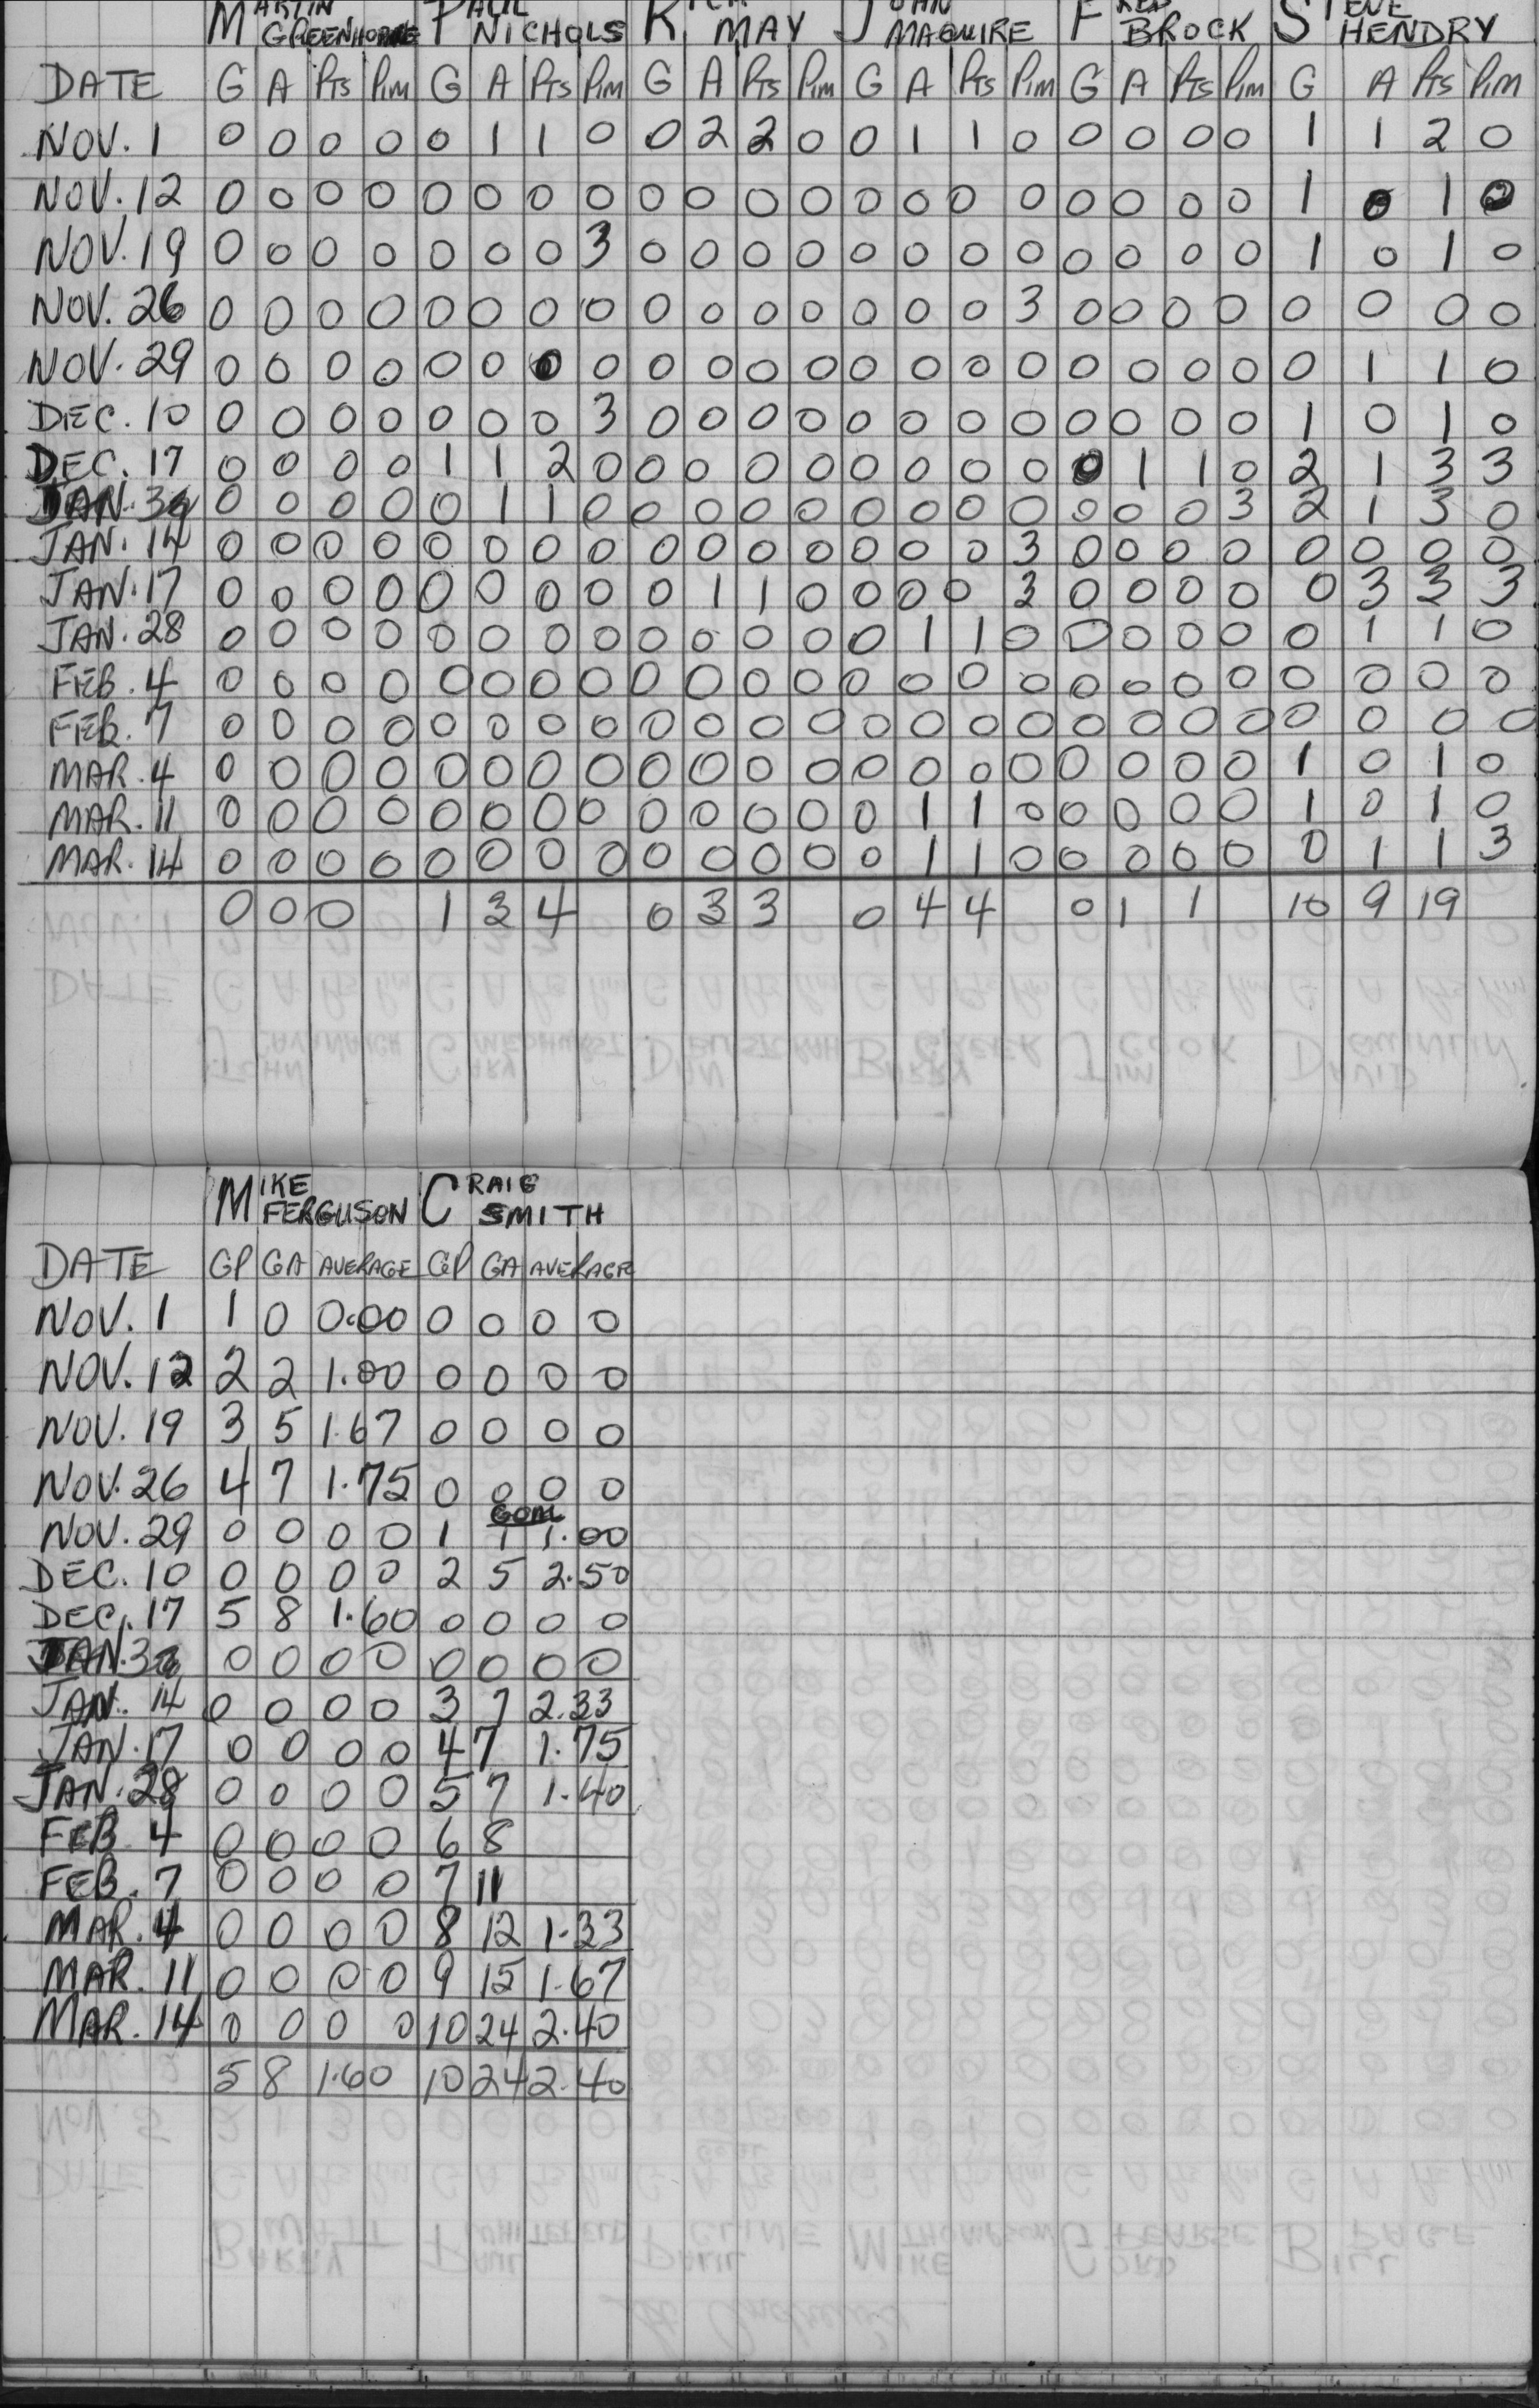 MARTIN PAUL RICK JOHN FRED STEVE
GREENHORNE NICHOLS MAY MAGUIRE BROCK HENDRY
DATE G A Pts Pim G A Pts Pim G A Pts Pim G A Pts Pim G A Pts Pim G A Pts Pim
NOV. 1 0 0 0 0 0 1 1 0 0 2 2 0 0 1 1 0 0 0 0 0 1 1 2 0
NOV. 12 0 0 0 0 0 0 0 0 0 0 0 0 0 0 0 0 0 0 0 0 1 0 1 0
NOV. 19 0 0 0 0 0 0 0 3 0 0 0 0 0 0 0 0 0 0 0 0 1 0 1 0
NOV. 26 0 0 0 0 0 0 0 0 0 0 0 0 0 0 0 3 0 0 0 0 0 0 0 0
NOV. 29 0 0 0 0 0 0 0 0 0 0 0 0 0 0 0 0 0 0 0 0 0 1 1 0
DEC. 10 0 0 0 0 0 0 0 3 0 0 0 0 0 0 0 0 0 0 0 0 1 0 1 0
DEC. 17 0 0 0 0 1 1 2 0 0 0 0 0 0 0 0 0 0 1 1 0 2 1 3 3
JAN. 3 0 0 0 0 0 1 1 0 0 0 0 0 0 0 0 0 0 0 0 3 2 1 3 0
JAN. 14 0 0 0 0 0 0 0 0 0 0 0 0 0 0 0 3 0 0 0 0 0 0 0 0
JAN. 17 0 0 0 0 0 0 0 0 0 1 1 0 0 0 0 3 0 0 0 0 0 3 3 3
JAN. 28 0 0 0 0 0 0 0 0 0 0 0 0 0 1 1 0 0 0 0 0 0 1 1 0
FEB. 4 0 0 0 0 0 0 0 0 0 0 0 0 0 0 0 0 0 0 0 0 0 0 0 0
FEB. 7 0 0 0 0 0 0 0 0 0 0 0 0 0 0 0 0 0 0 0 0 0 0 0 0
MAR. 4 0 0 0 0 0 0 0 0 0 0 0 0 0 0 0 0 0 0 0 0 1 0 1 0
MAR. 11 0 0 0 0 0 0 0 0 0 0 0 0 0 1 1 0 0 0 0 0 1 0 1 0
MAR. 14 0 0 0 0 0 0 0 0 0 0 0 0 0 1 1 0 0 0 0 0 0 1 1 3
0 0 0 1 3 4 0 3 3 0 4 4 0 1 1 10 9 19
MIKE CRAIG
FERGUSON SMITH
DATE GP GA AVERAGE GP GA AVERAGE
NOV. 1 1 0 0.00 0 0 0 0
NOV. 12 2 2 1.00 0 0 0 0
NOV. 19 3 5 1.67 0 0 0 0
NOV. 26 4 7 1.75 0 0 0 0
NOV. 29 0 0 0 0 1 1 1.00
DEC. 10 0 0 0 0 2 5 2.50
DEC. 17 5 8 1.60 0 0 0 0
JAN. 3 0 0 0 0 0 0 0 0
JAN. 14 0 0 0 0 3 7 2.33
JAN. 17 0 0 0 0 4 7 1.75
JAN. 28 0 0 0 0 5 7 1.40
FEB 4 0 0 0 0 6 8
FEB. 7 0 0 0 0 7 11
MAR. 4 0 0 0 0 8 12 1.33
MAR. 11 0 0 0 0 9 15 1.67
MAR. 14 0 0 0 0 10 24 2.40
5 8 1.60 10 24 2.40